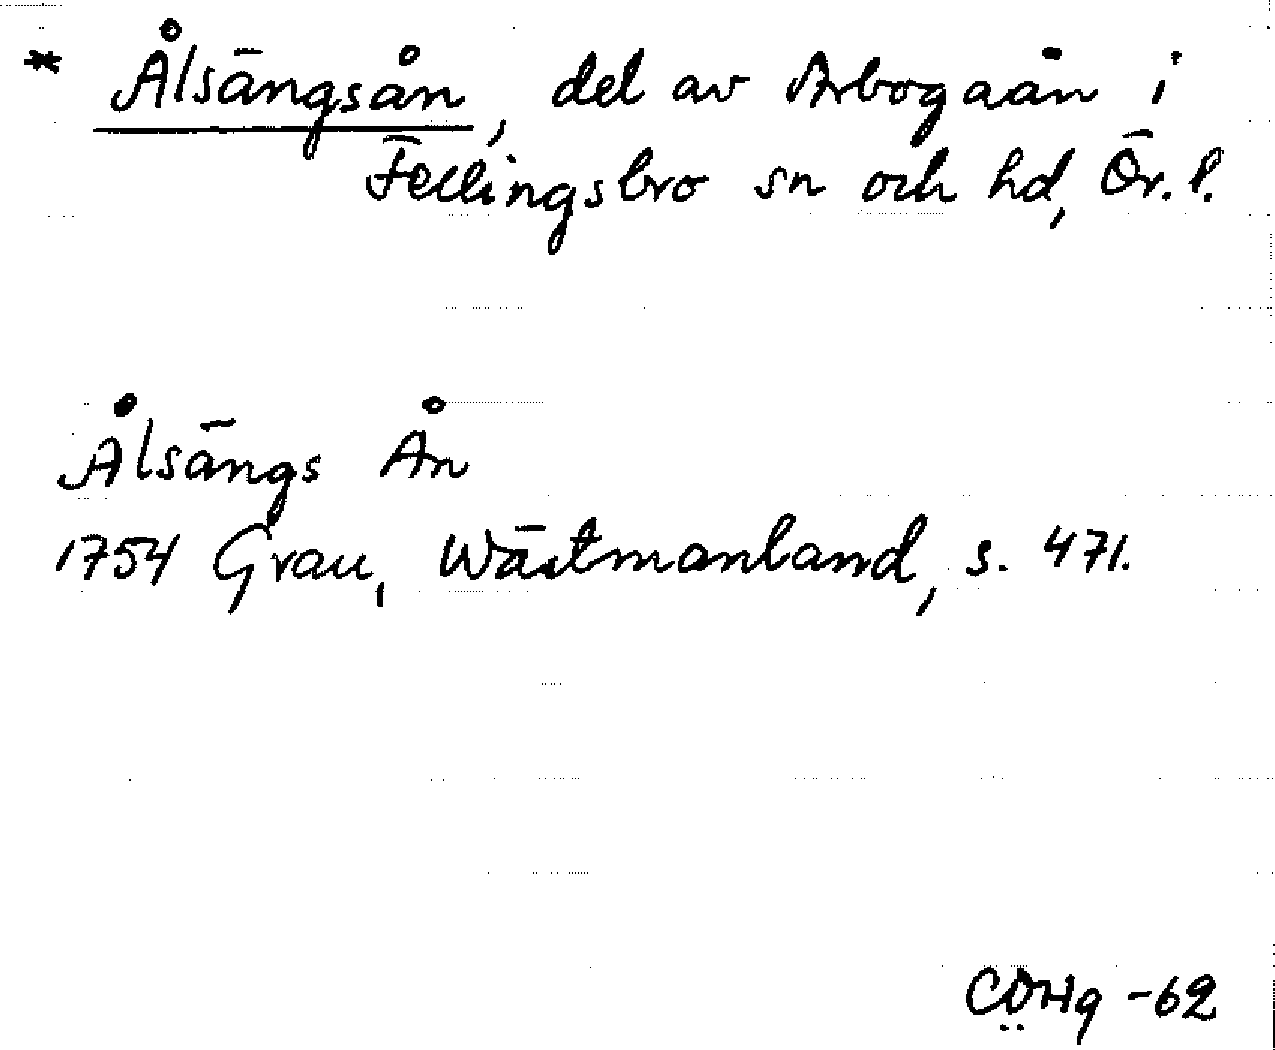 * Ålsängsån, del av Arbogaån i
Fellingsbro sn och hd, Ör. l.
Ålsängs Ån
1754 Grau, Wästmanland, s. 471.
-62